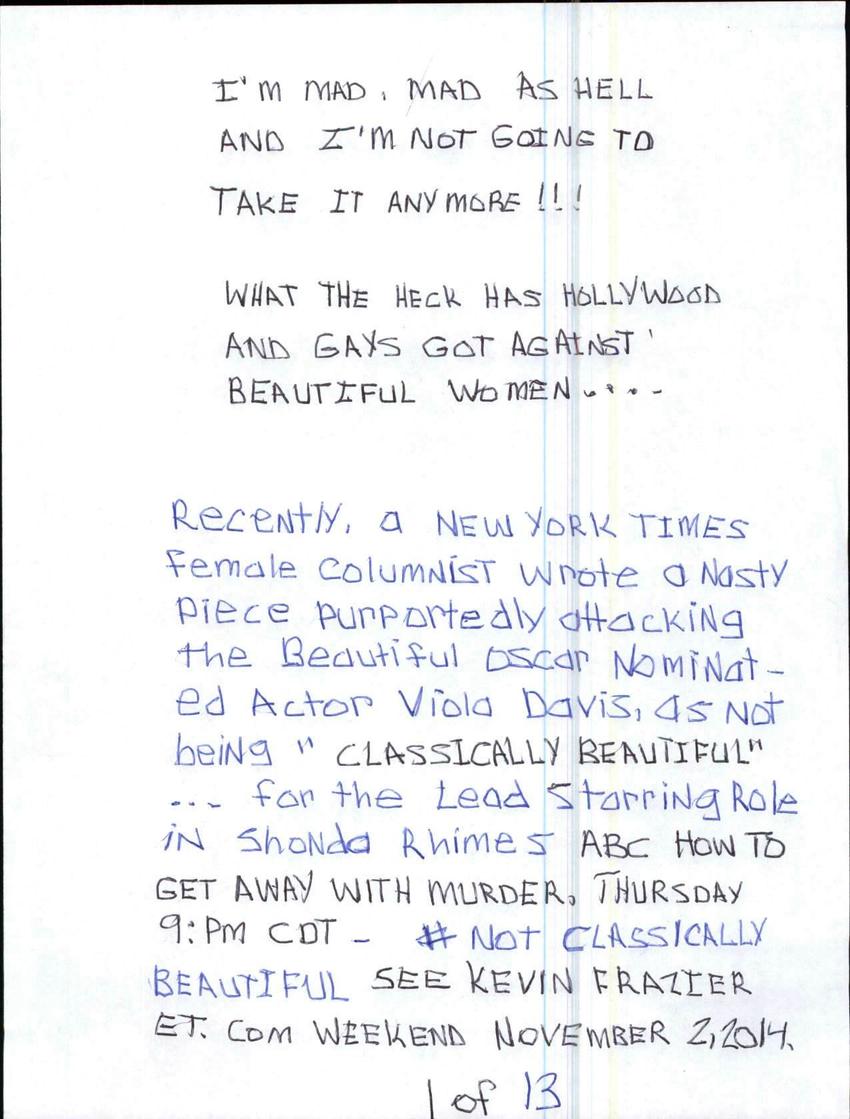 I'M MAD, MAD AS HELL
AND I'M NOT GOING TO
TAKE IT ANYMORE !!!
WHAT THE HECK HAS HOLLYWOOD
AND GAYS GOT AGAINST
BEAUTIFUL WOMEN....
Recently, a NEW YORK TIMES
female columnist wrote a Nasty
piece purportedly attacking
the Beautiful oscar Nominat-
ed Actor Viola Davis, as Not
being " CLASSICALLY BEAUTIFUL"
... for the Lead Starring Role
in Shonda Rhimes ABC HOW TO
GET AWAY WITH MURDER, THURSDAY
9:PM CDT - # NOT CLASSICALLY
BEAUTIFUL SEE KEVIN FRAZIER
ET. COM WEEKEND NOVEMBER 2, 2014.
1 of 13